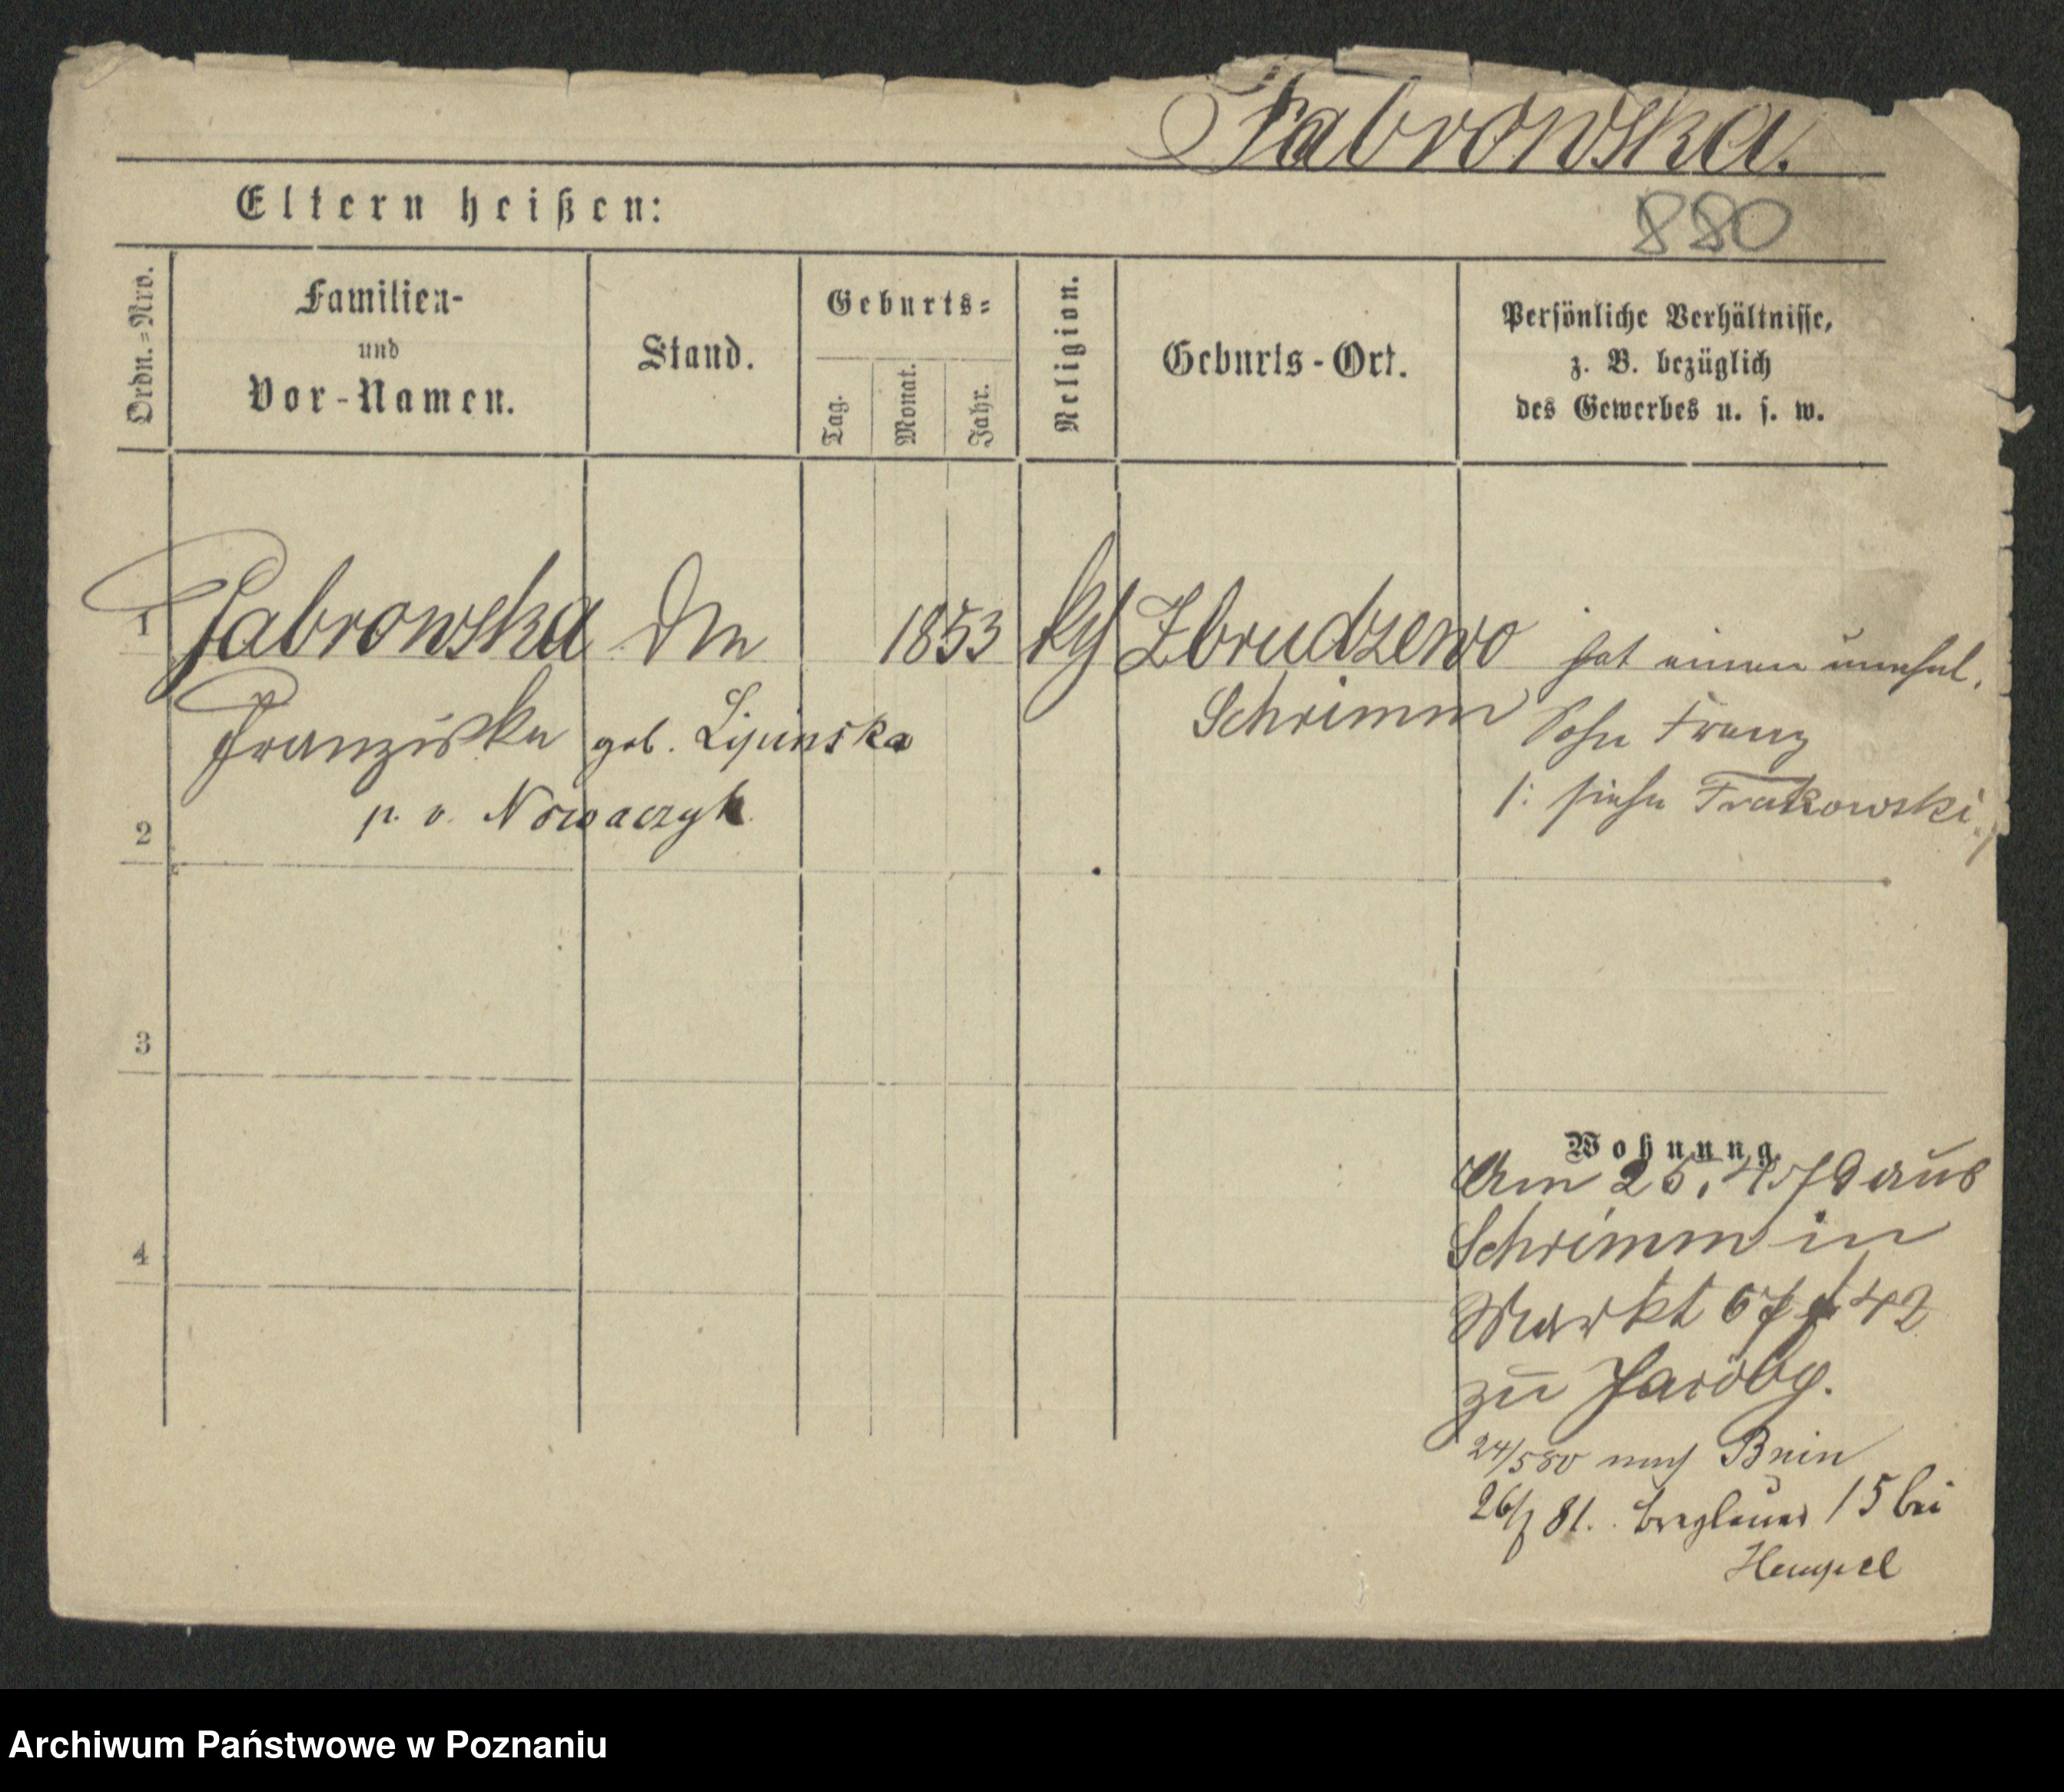 Fabrowska.
Eltern heißen:
880
Ordn.-Nro.
Familien-
und
Vor-Namen.
Stand.
Geburts-
Tag.
Monat.
Jahr.
Religion.
Geburts-Ort.
Persönliche Verhältnisse,
z. B. bezüglich
des Gewerbes u. s. w.
1 Fabrowska 1853 Zbrudzewo hat einen unehel.
Franziska geb. Lipinska Schrimm Sohn Franz
p. v. Nowaczyk /: siehe Frakowski :/
2
3
4
Wohnung.
Am 25. 4. 79 aus
Schrimm in
Markt 67 42
zu Jacoby.
24/5 80 nach Bnin
26/7 81. Breslauer 15 bei
Hempel
Archiwum Państwowe w Poznaniu